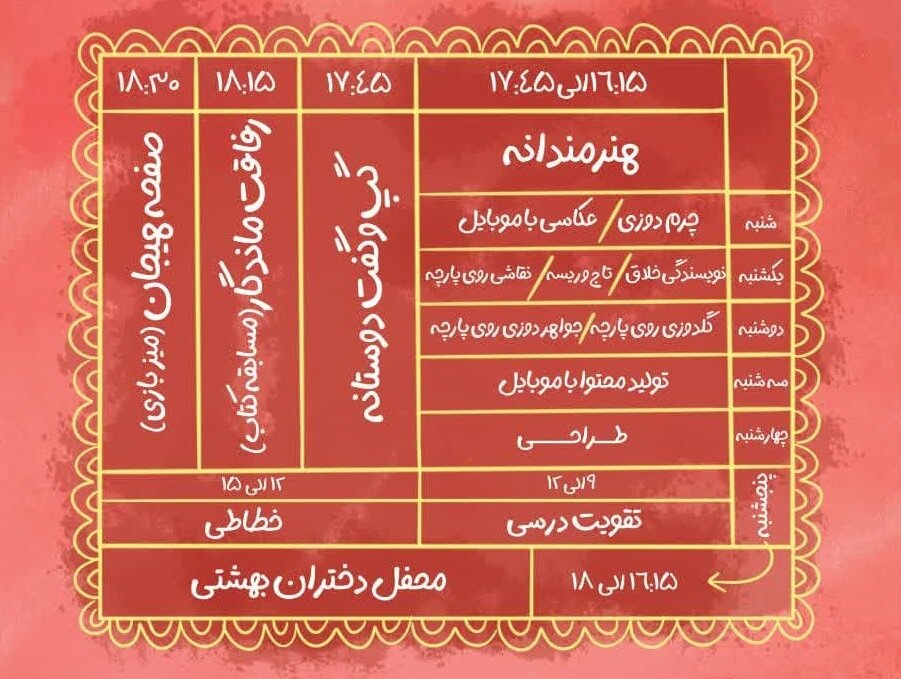 ۱۶:۱۵ الی ۱۷:۴۵
۱۷:۴۵
۱۸:۱۵
۱۸:۳۰
هنرمندانه
گپ و گفت دوستانه
رفاقت ماندگار (مسابقه کتاب)
صفحه هیجان (میز بازی)
شنبه
چرم دوزی / عکاسی با موبایل
یکشنبه
نویسندگی خلاق / تاج و ریسه / نقاشی روی پارچه
دوشنبه
گلدوزی روی پارچه / جواهر دوزی روی پارچه
سه شنبه
تولید محتوا با موبایل
چهارشنبه
طراحــی
پنجشنبه
۹ الی ۱۲
۱۲ الی ۱۵
تقویت درسی
خطاطی
۱۶:۱۵ الی ۱۸
محفل دختران بهشتی